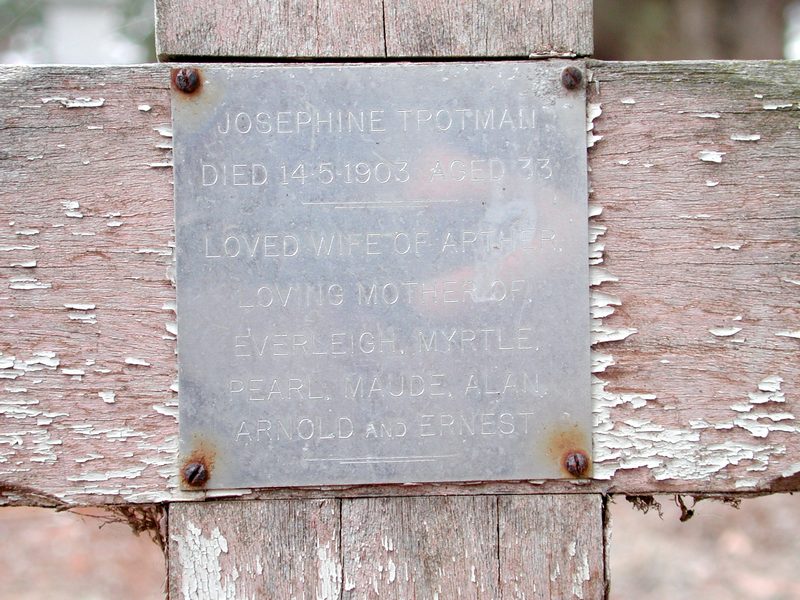 JOSEPHINE TROTMAN
DIED 14·5·1903 AGED 33
LOVED WIFE OF ARTHER,
LOVING MOTHER OF,
EVERLEIGH, MYRTLE,
PEARL, MAUDE, ALAN,
ARNOLD AND ERNEST